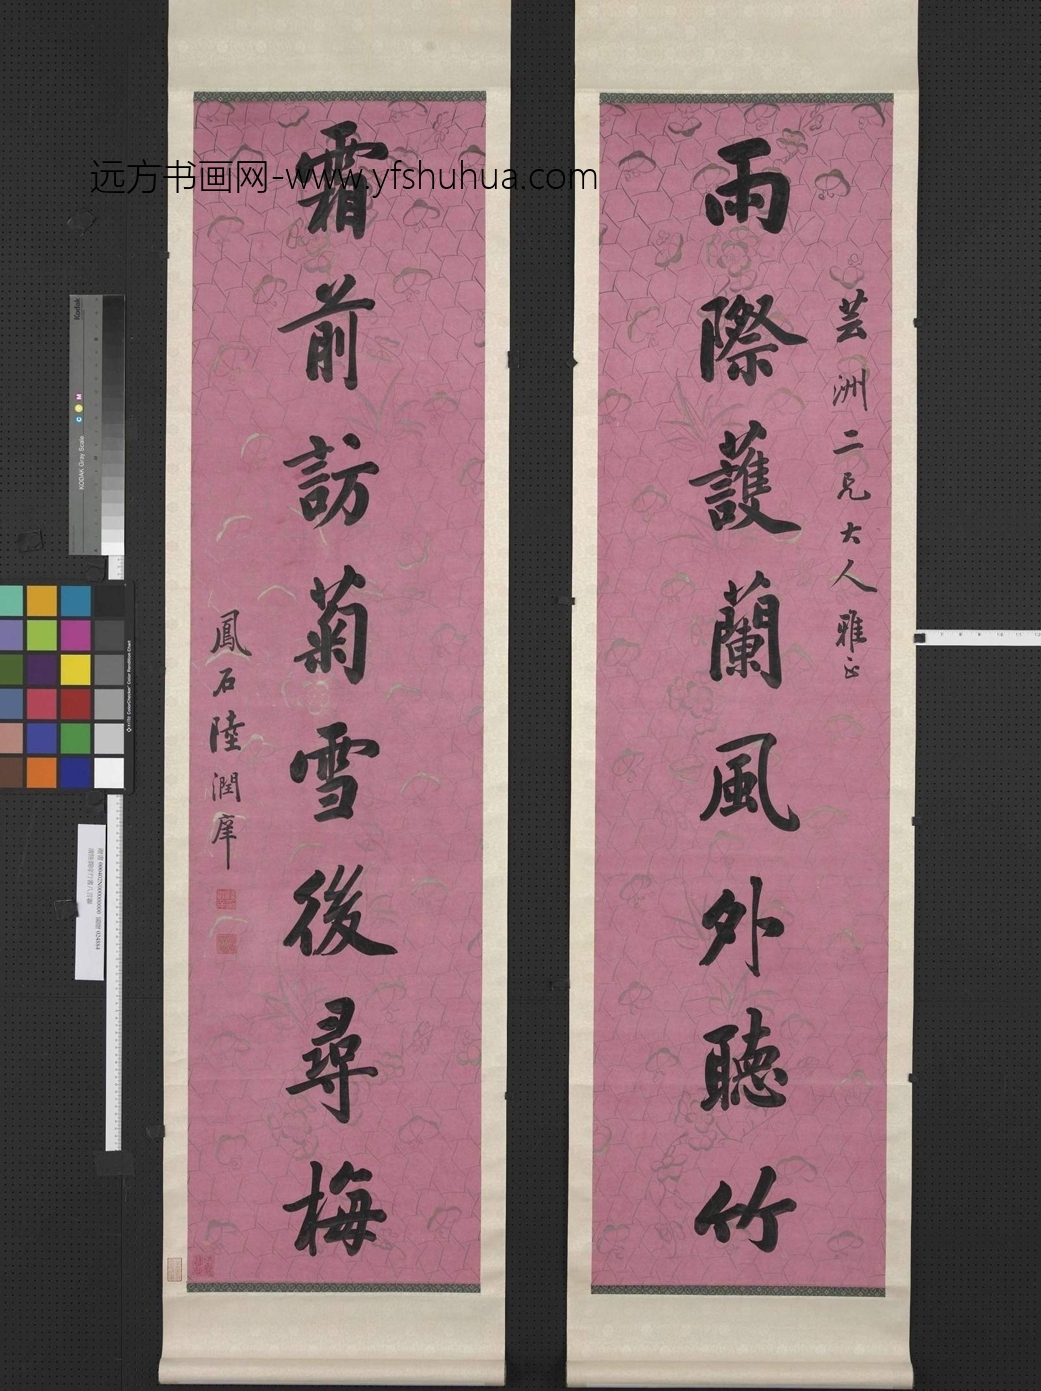 雨際護蘭風外聽竹
芸洲二兄大人雅正
霜前訪菊雪後尋梅
鳳石陸潤庠
远方书画网-www.yfshuhua.com
Kodak
KODAK Gray Scale
C Y M